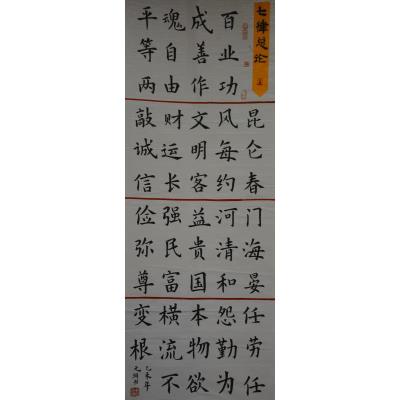 七律总论
百业功
成善作
魂自由
平等两
昆仑春
风每约
文明客
财运长
敲诚信
门海晏
河清和
益贵国
强民富
俭弥尊
任劳任
怨勤为
本物欲
横流不
变根
乙未年